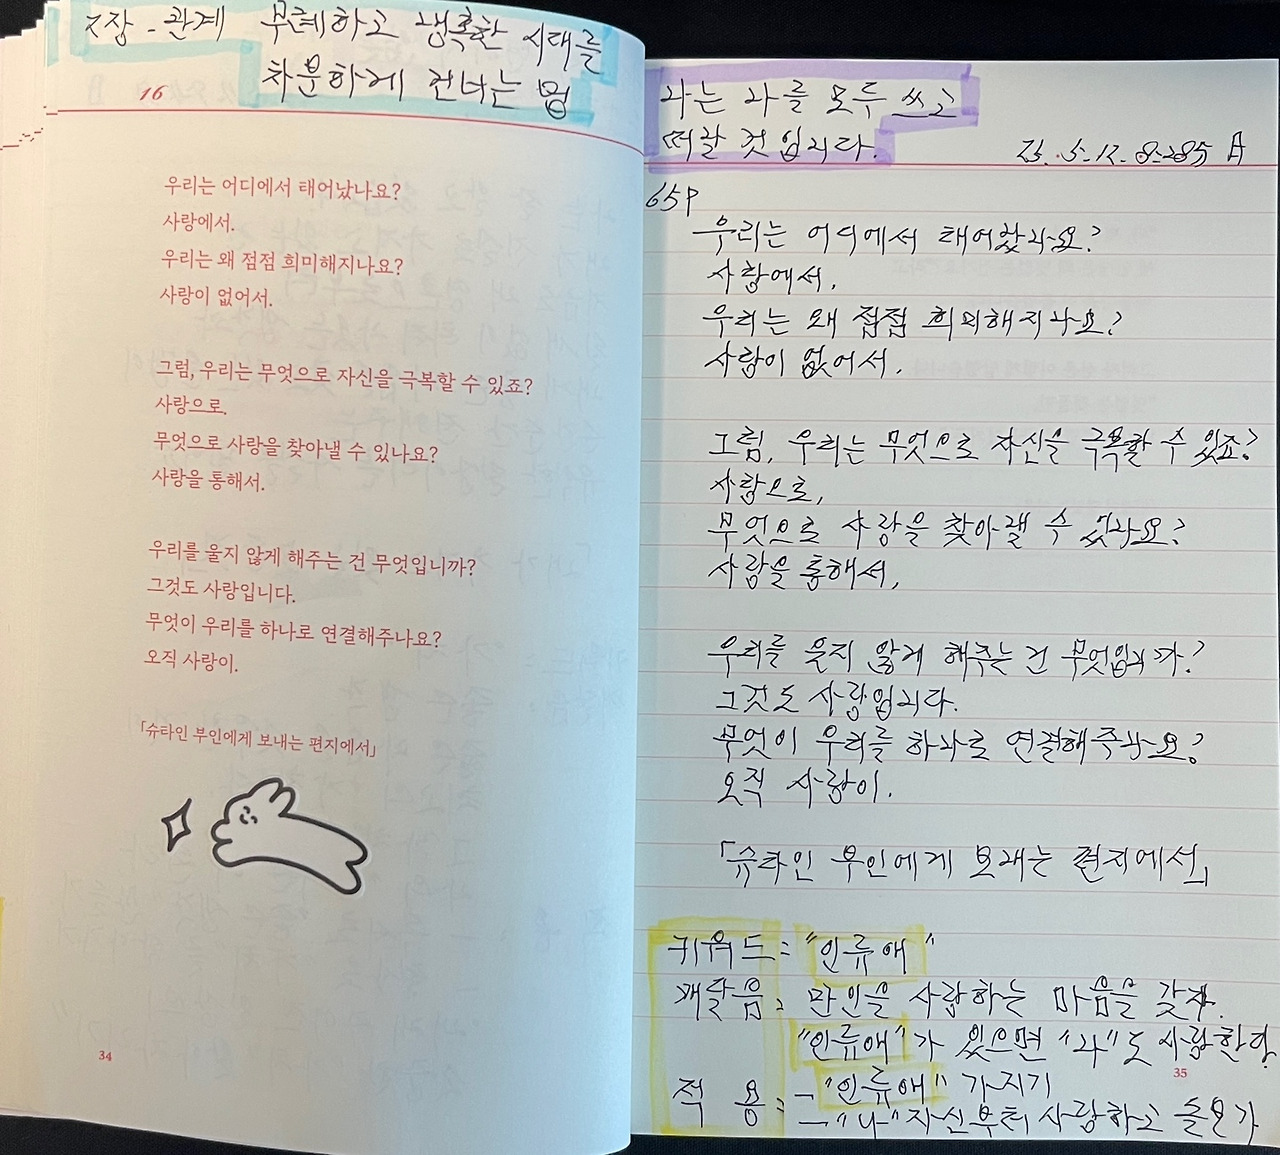 2장 - 관계 무례하고 행복한 시대를
차분하게 건너는 법
16
우리는 어디에서 태어났나요?
사랑에서.
우리는 왜 점점 희미해지나요?
사랑이 없어서.
그럼, 우리는 무엇으로 자신을 극복할 수 있죠?
사랑으로.
무엇으로 사랑을 찾아낼 수 있나요?
사랑을 통해서.
우리를 울지 않게 해주는 건 무엇입니까?
그것도 사랑입니다.
무엇이 우리를 하나로 연결해주나요?
오직 사랑이.
「슈타인 부인에게 보내는 편지에서」
34
나는 나를 모두 쓰고
떠날 것입니다.
65P
우리는 어디에서 태어났나요?
사랑에서.
우리는 왜 점점 희미해지나요?
사랑이 없어서.
그럼, 우리는 무엇으로 자신을 극복할 수 있죠?
사랑으로,
무엇으로 사랑을 찾아낼 수 있나요?
사랑을 통해서,
우리를 울지 않게 해주는 건 무엇입니까?
그것도 사랑입니다.
무엇이 우리를 하나로 연결해주나요?
오직 사랑이.
「슈타인 부인에게 보내는 편지에서」
키워드 : "인류애"
깨달음 : 만인을 사랑하는 마음을 갖자.
"인류애"가 있으면 "나"도 사랑한다
35
적 용 : - "인류애" 가지기
- "나" 자신부터 사랑하고